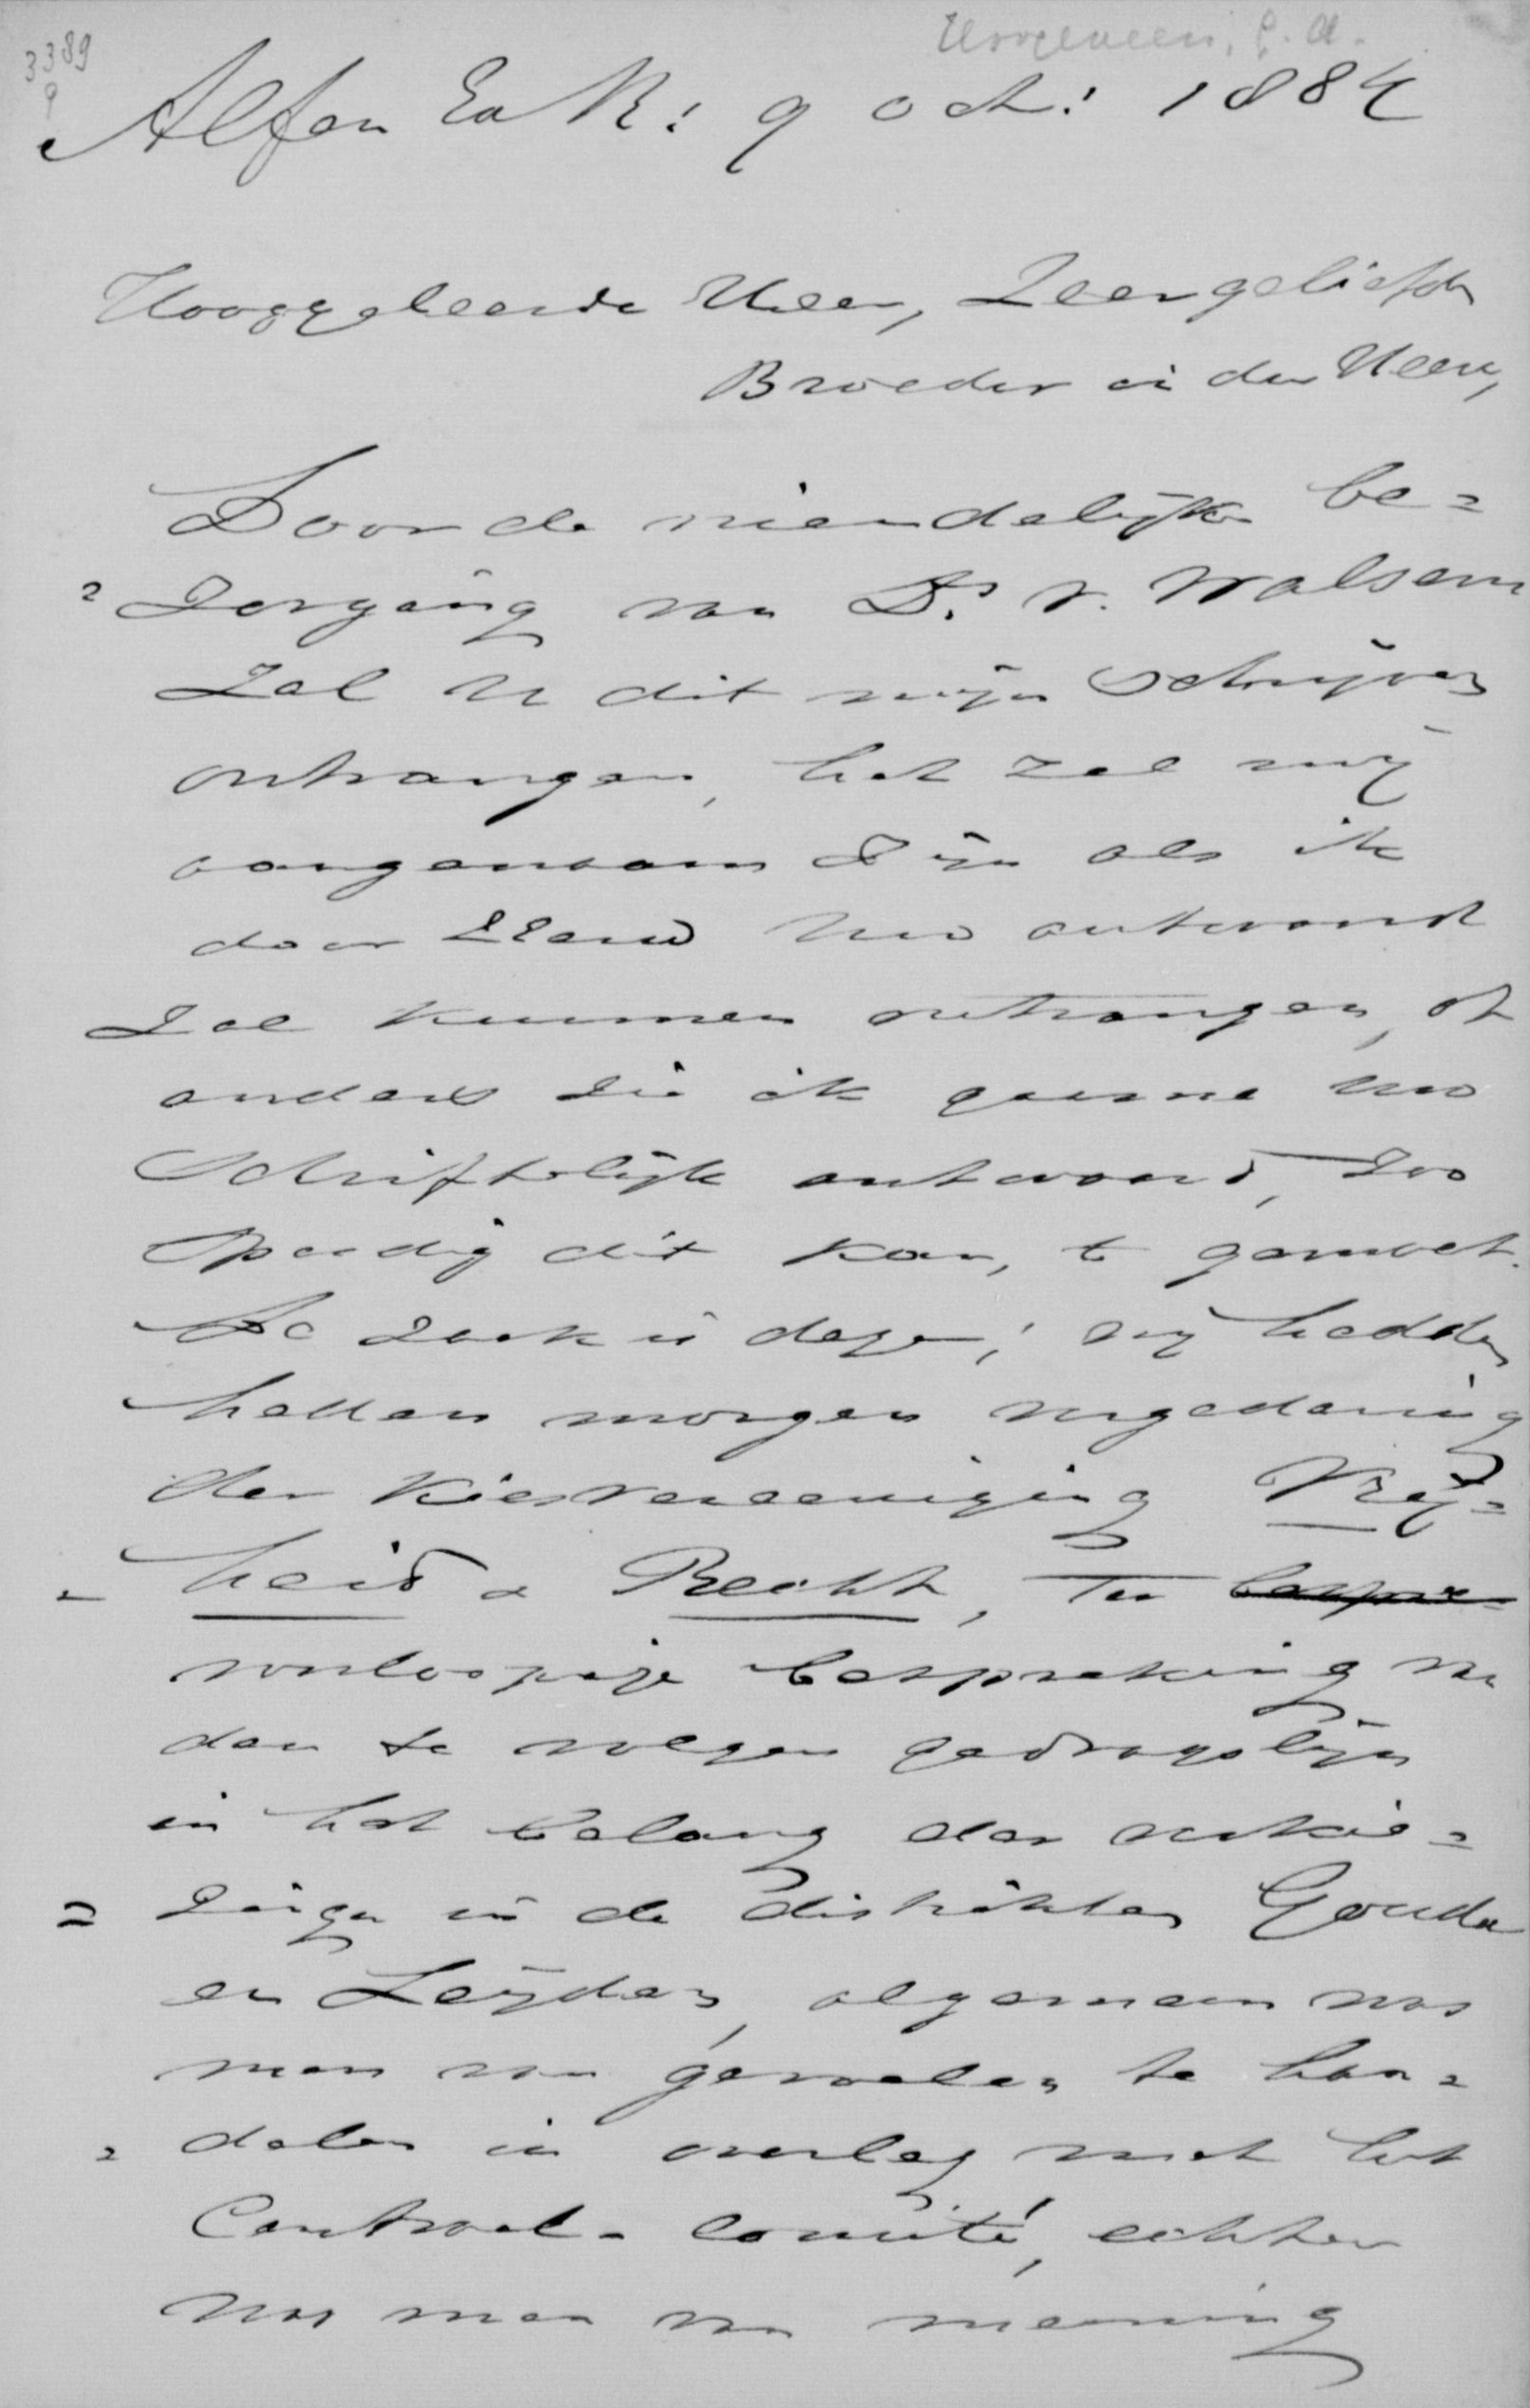 Hoogeveen, P. A.
3389
9
Alfen Ea R: 9 oct: 1884
Hooggeleerde Heer, Zeer geliefde
Broeder in den Heere,
Door de vriendelijke be=
=zorging van Ds v. Walsem
zal U dit mijn schrijven
ontvangen, het zal mij
aangenaam zijn als ik
door ZEerw Uw antwoord
zal kunnen ontvangen, of
anders zie ik gaarne Uw
schriftelijk antwoord, zoo
spoedig dit kan, te gemoet.
De zaak is deze; wij hadden
heden morgen vergadering
der Kiesvereeniging Vrij=
-heid & Recht, ter bespre=
voorloopige bespreking van
den te volgen gedragslijn
in het belang der verkie=
=zingen in de distrikten Gouda
en Leijden, algemeen was
men van gevoelen te han=
=delen in overleg met het
Centraal-Comité, echter
was men van meening